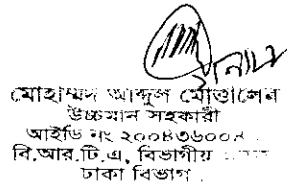 মোহাম্মদ আব্দুল মোত্তালেব
উচ্চমান সহকারী
আইডি নং ২০০৪৩৬০০
বি.আর.টি.এ, বিভাগীয়
ঢাকা বিভাগ